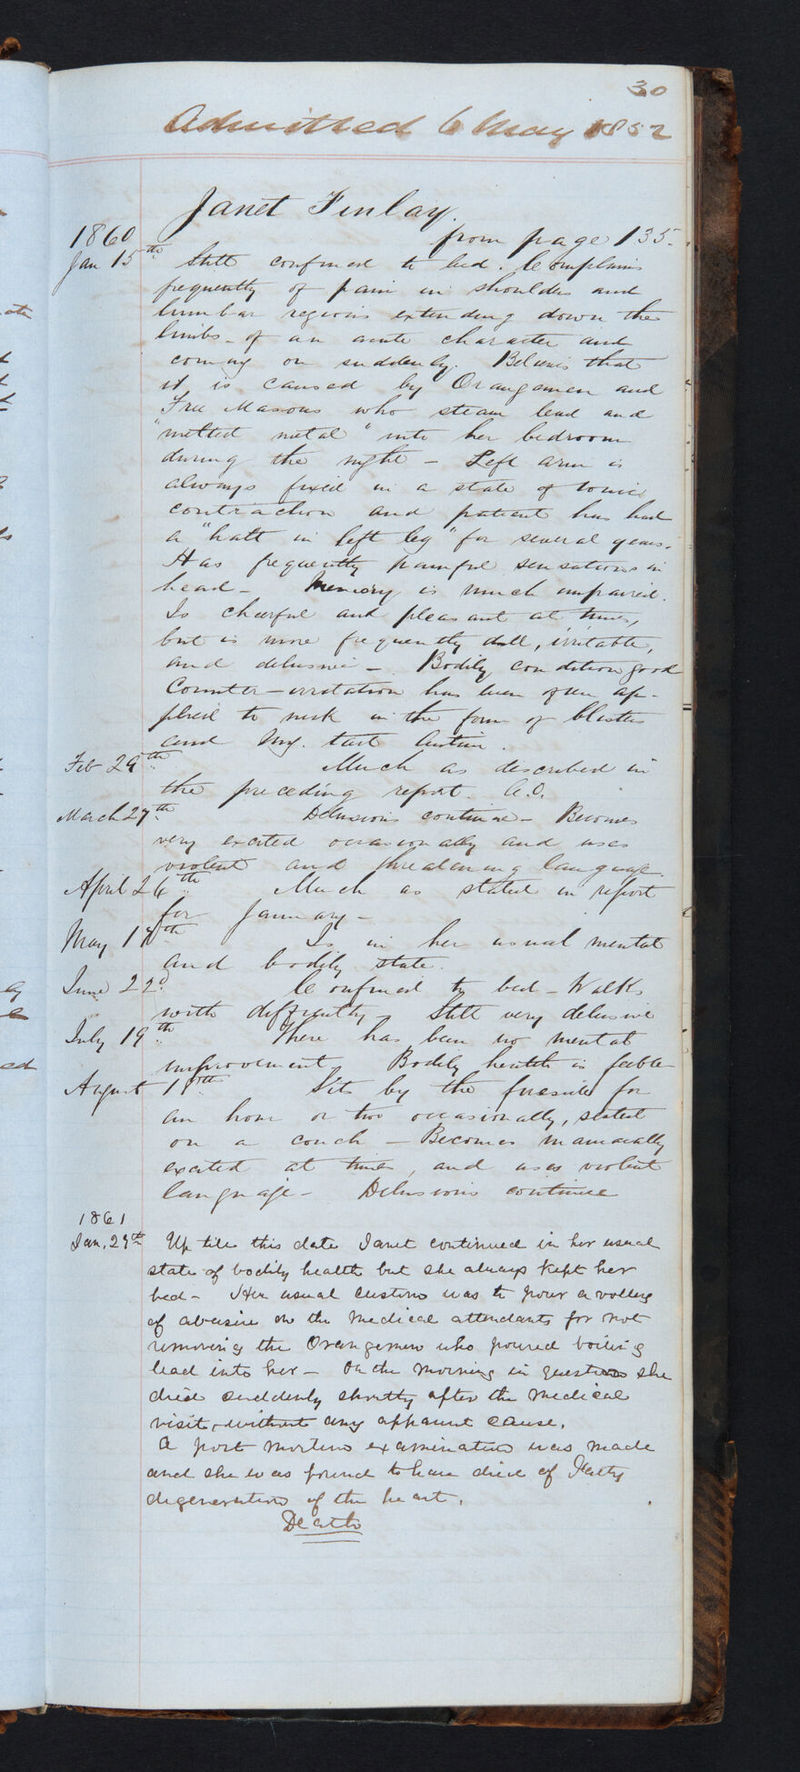 30
Admitted 6 May 1852
Janet Finlay.
1860 from page 135.
Jan 15th Still confined to bed. Complains
frequently of pain in shoulder and
lumbar regions extending down the
limbs - of an acute character and
coming on suddenly. Believes that
it is caused by Orangemen and
Free Masons who steam lead and
"melted metal" into her bedroom
during the night - Left arm is
always fixed in a state of tonic
contraction and patient has had
a "halt in left leg" for several years.
Has frequently painful sensations in
head - Memory is much impaired.
Is cheerful and pleasant at times,
but is more frequently dull, irritable,
and delusive - Bodily condition good
Counter-irritation has been often ap-
plied to neck in the form of blisters
and Ung. tart Antim.
Feb 29th Much as described in
the preceding report. A.O.
March 27th Delusions continue - Becomes
very excited occasionally and uses
violent and threatening language.
April 26th Much as stated in report
for January -
May 18th Is in her usual mental
and bodily state.
June 22d Confined to bed - Walks
with difficulty - Still very delusive
July 19th There has been no mental
improvement. Bodily health is feeble
August 18th Sits by the fireside for
an hour or two occasionally, seated
on a couch - Becomes maniacally
excited at times, and uses violent
language - Delusions continue
1861
Jan. 29th Up till this date Janet continued in her usual
state of bodily health but she always kept her
bed - Her usual custom was to pour a volley
of abuse on the medical attendants for not
removing the Orangemen who poured boiling
lead into her - On the morning in question she
died suddenly shortly after the medical
visit, without any apparent cause.
A post mortem examination was made
and she was found to have died of Fatty
degeneration of the heart.
Death